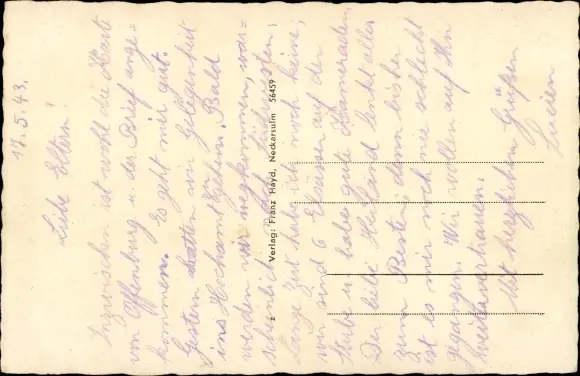 17.5.43.
Liebe Eltern!
Inzwischen ist wohl die Karte
von Offenburg u. der Brief ange=
kommen. Es geht mir gut.
Gestern hatten wir Gelegenheit
ins Hochamt zu gehen. Bald
werden wir wegkommen, wahr=
scheinlich nach
Lange Zeit habe ich noch keine,
wir sind 6 Elsässer auf der
Stube u. habe gute Kameraden.
Der liebe Heiland lenkt alles
zum Besten, denn bisher
ist es mir noch nie schlecht
gegangen. Wir wollen auf Ihn
weitervertrauen.
Mit herzlichen Grüßen
Lucien
z Verlag: Franz Hayd, Neckarsulm 56459